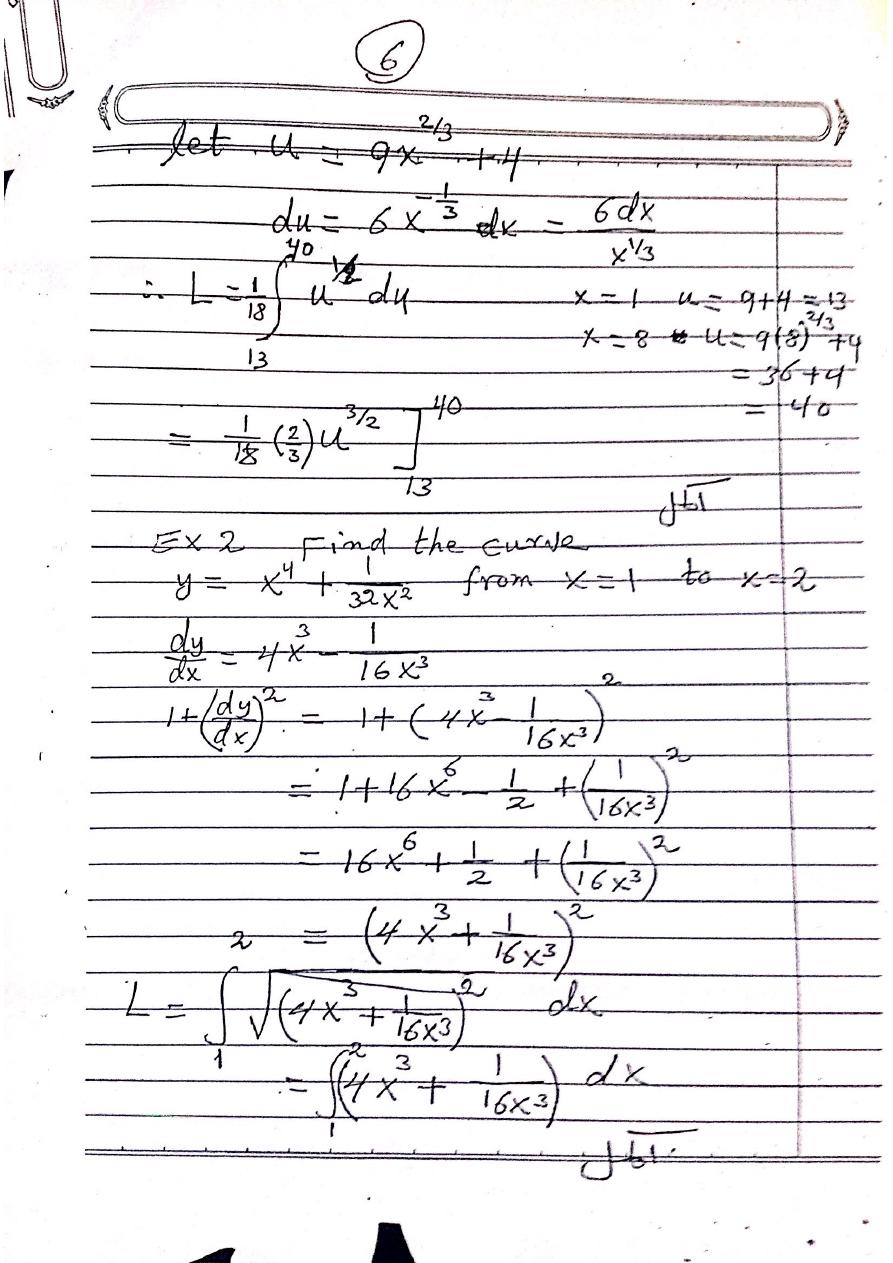 6
let u = 9x^{2/3} + 4
du = 6x^{-1/3} dx = \frac{6dx}{x^{1/3}}
∴ L = \frac{1}{18} \int_{13}^{40} u^{1/2} du
x = 1 u = 9+4 = 13
x = 8 u = 9(8)^{2/3} + 4
= 36 + 4
= 40
= \frac{1}{18} (\frac{2}{3}) u^{3/2} ]_{13}^{40}
Ex 2 Find the curve
y = x^4 + \frac{1}{32x^2} from x = 1 to x = 2
\frac{dy}{dx} = 4x^3 - \frac{1}{16x^3}
1 + (\frac{dy}{dx})^2 = 1 + (4x^3 - \frac{1}{16x^3})^2
= 1 + 16x^6 - \frac{1}{2} + (\frac{1}{16x^3})^2
= 16x^6 + \frac{1}{2} + (\frac{1}{16x^3})^2
= (4x^3 + \frac{1}{16x^3})^2
L = \int_1^2 \sqrt{(4x^3 + \frac{1}{16x^3})^2} dx
= \int_1^2 (4x^3 + \frac{1}{16x^3}) dx